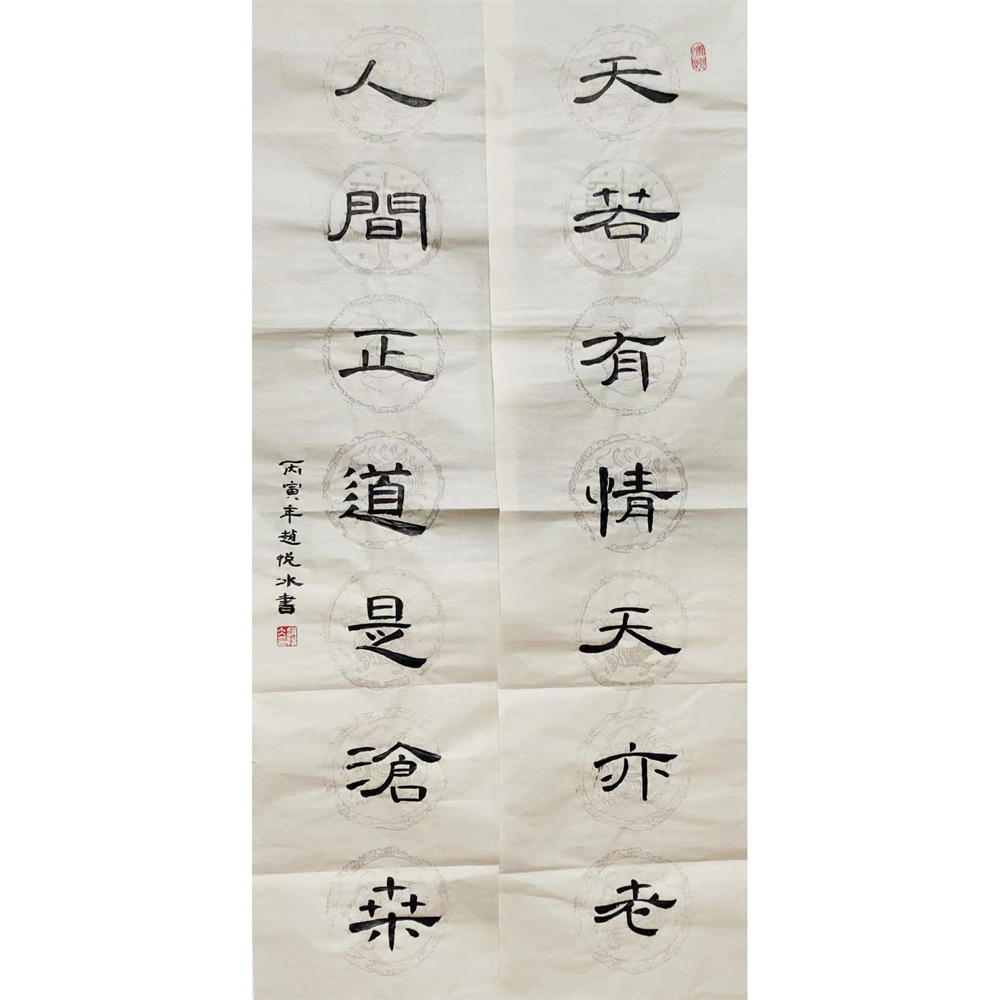 天若有情天亦老
人間正道是滄桒
丙寅年趙悅冰書